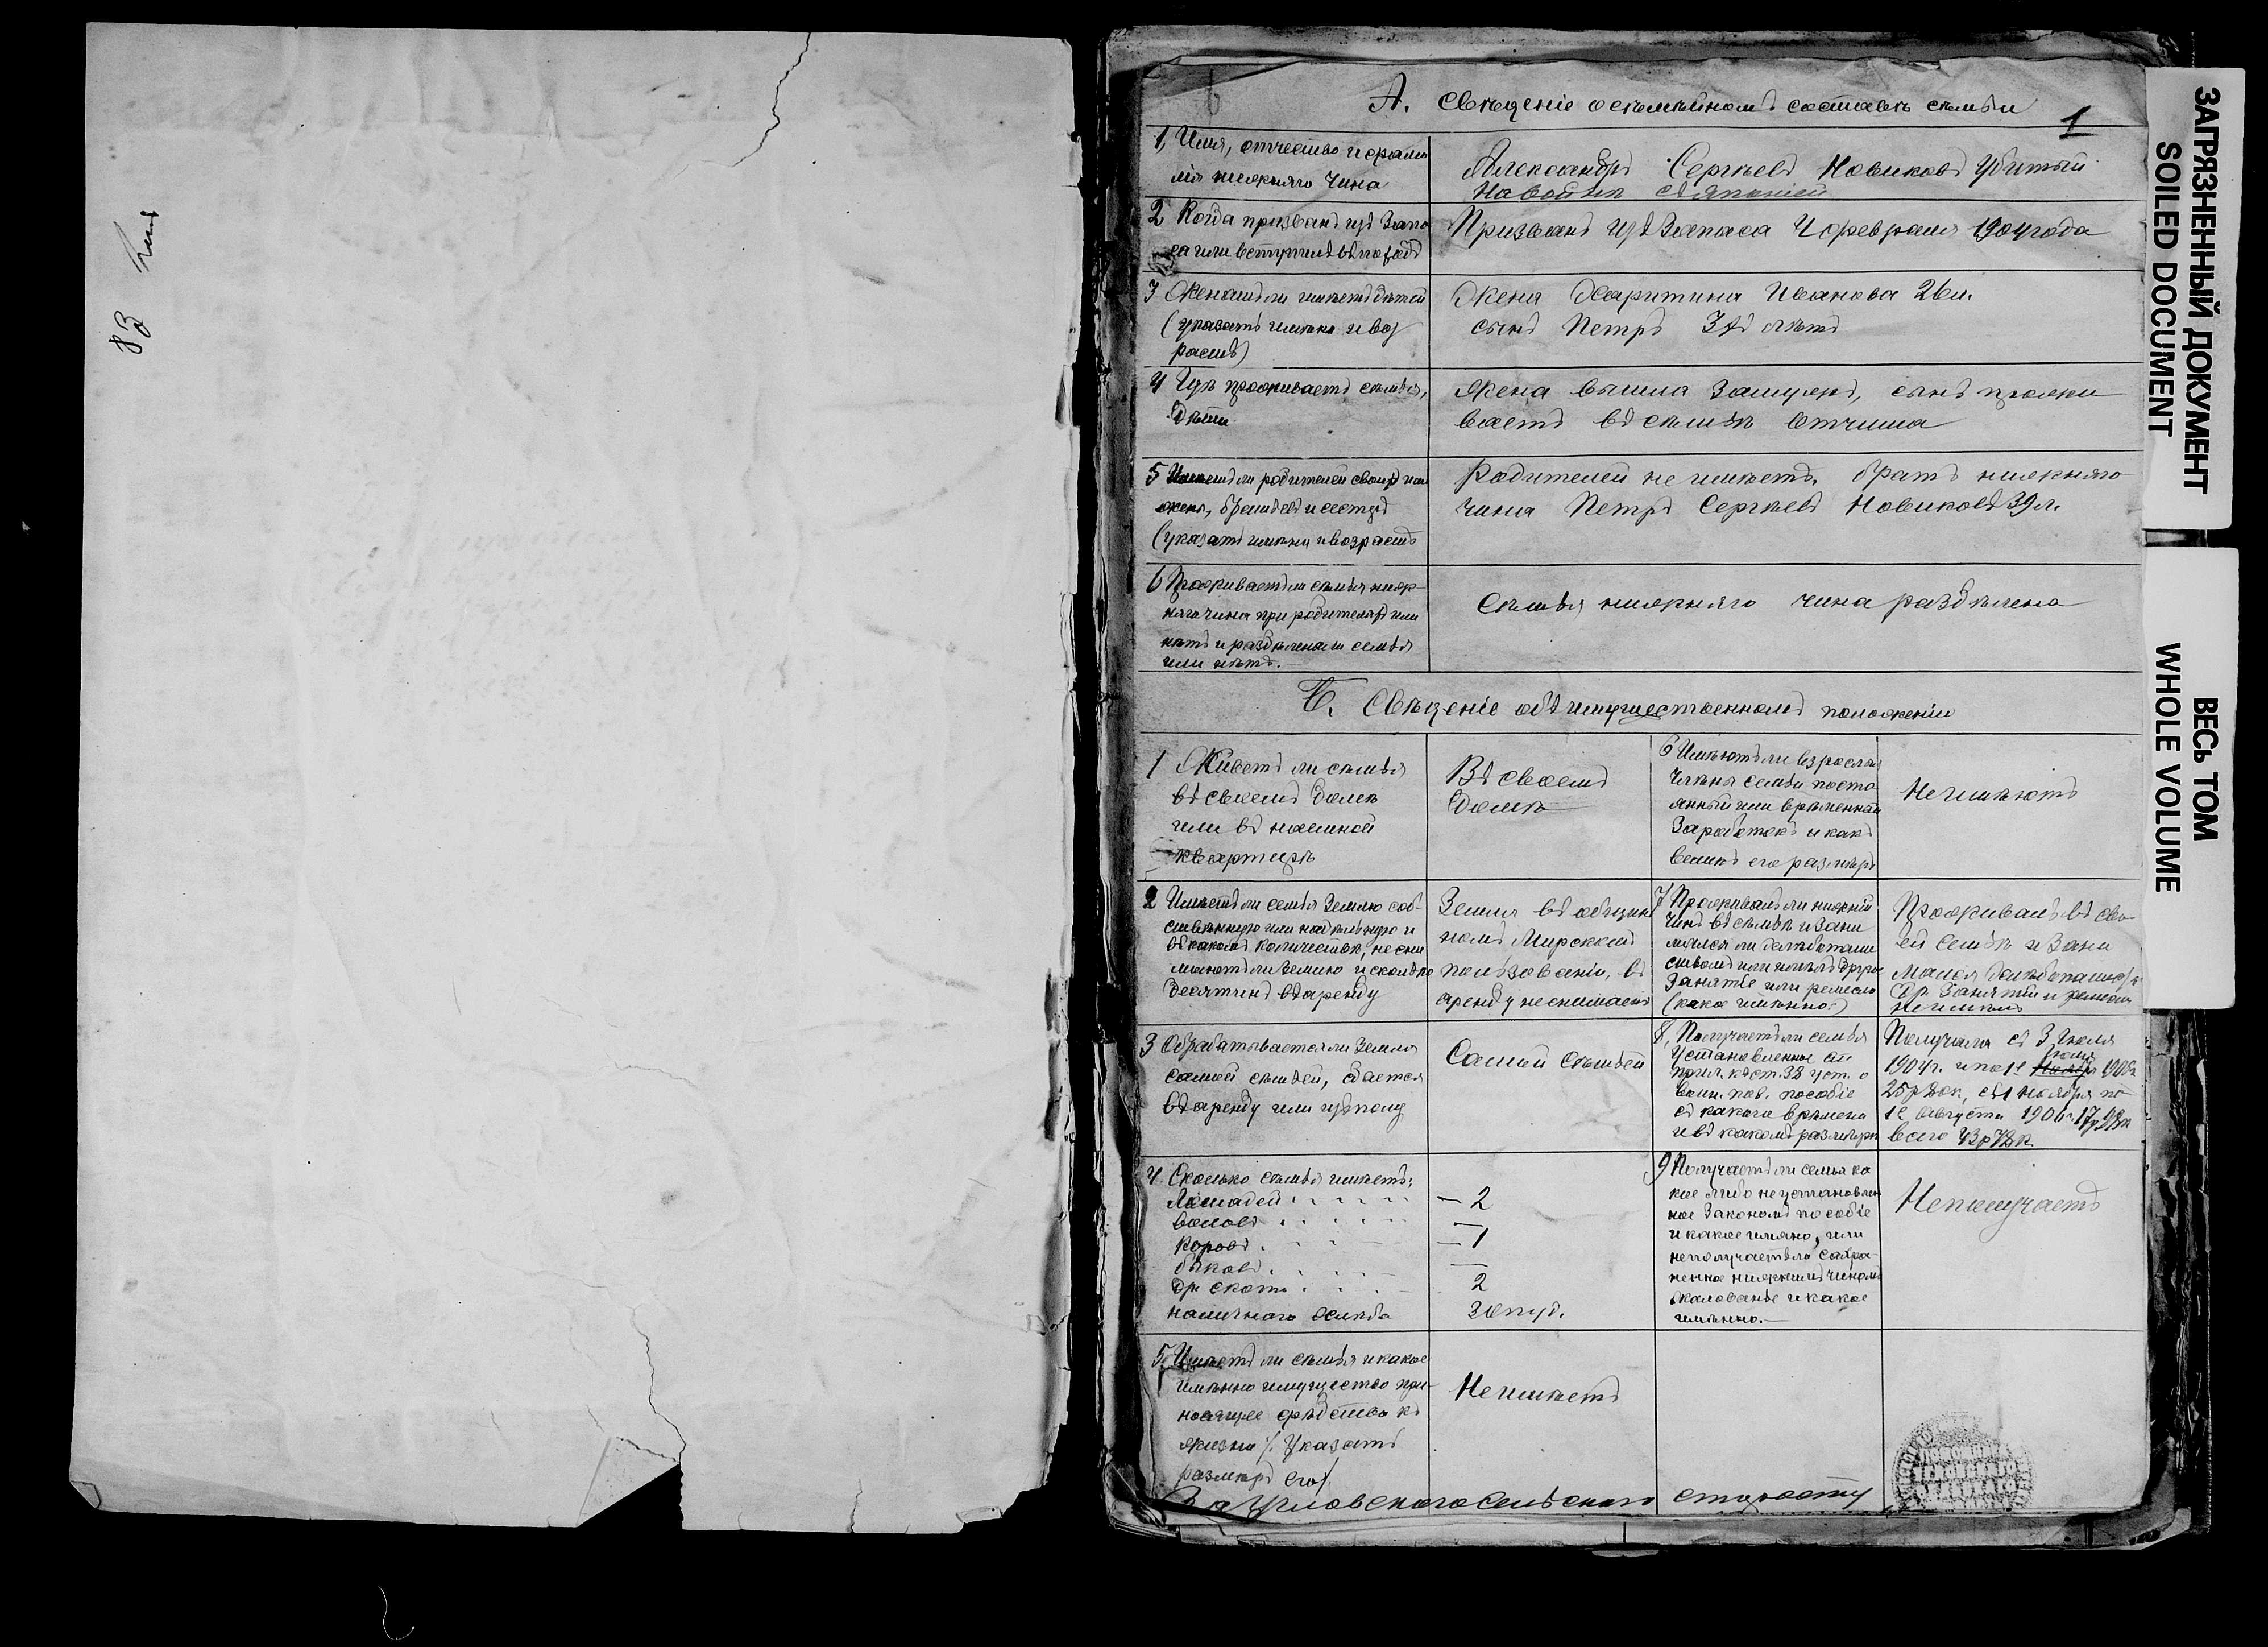 83
А. Свѣденіе о семѣйномъ составѣ сѣмьи
1
1, Имя, отчество и фами
лія нижняго чина
Александръ Сергѣевъ Новиковъ Убитый
На войнѣ съ Японіей
2 Когда призванъ изъ Запа
са или вступилъ въ походъ
Призванъ изъ Запаса 4 февраля 1904 года
3 Женатъ ли имѣетъ дѣтей
(указать имѣна и воз
растъ)
Жена Харитина Иванова 26 л.
сынъ Петръ лѣтъ
4 Гдѣ проживаетъ сѣмья,
дѣти
Жена вышла замужъ, сынъ прожи
ваетъ въ сѣмьѣ вотчима
5 Имѣетъ ли родителей своихъ или
жены, братьевъ и сестеръ
(указать имѣна и возрастъ
Родителей не имѣетъ, братъ нижняго
чина Петръ Сергѣевъ Новиковъ 39 л.
6 Проживаетъ ли сѣмья ниж-
няго чина при родителяхъ или
нѣтъ и раздѣлена ли семья
или нѣтъ.
Сѣмья нижняго чина раздѣлена
Б. Свѣденіе объ имущественномъ положеніи
1 Живетъ ли сѣмья
въ своемъ домѣ
или въ наемной
квартирѣ
Въ своемъ
домѣ
6 Имѣютъ ли взрослые
члѣны семьи посто
янный или врѣменный
Заработокъ и какъ
великъ его размѣръ
Не имѣютъ
2 Имѣетъ ли семья Землю соб-
ственную или надѣльную и
въ какомъ количествѣ, не сни
маютъ ли Землю и сколько
десятинъ въ аренду
Земля въ общин
номъ Мирскомъ
пользованіи, въ
аренду не снимаетъ
7 Проживалъ ли нижній
чинъ въ сѣмьѣ и Зани
мался ли хлѣбопаше
ствомъ или имѣлъ другое
Занятіе или ремесло
(какое имѣнно)
Проживалъ въ сво-
ей семьѣ и Зани
мался
др. Занятій и ремесла
не имѣлъ
3 Обрабатывается ли Земля
самой сѣмьей, сдается
въ аренду или изъ полу
Самой Сѣмьей
8, Получаетъ ли семья
Установленное
прил. къ ст. 38 уст. о
воин. пов. пособіе
съ какого врѣмени
и въ какомъ размѣрѣ
Получала съ 3 Іюля
1904 г. и по 1е
съ 1 ноября по
1е Августа 1906 г.
всего
4 Сколько сѣмья имѣетъ:
Лошадей
— 2
воловъ
—
коровъ
— 1
быковъ
—
др. скота
2
наличнаго хлѣба
30 пуд.
9 Получаетъ ли семья ка
кое либо не установлен
ное Закономъ пособіе
и какое имяно, или
не получаетъ ли сохра-
ненное нижнимъ чиномъ
жалованье и какое
имѣнно.—
Не получаетъ
5. Имѣетъ ли сѣмья и какое
имѣнно имущество при-
носящее срѣдство къ
жизни /. Указать
размѣръ его/
Не имѣетъ
За Сельскаго старосту
ЗАГРЯЗНЕННЫЙ ДОКУМЕНТ
SOILED DOCUMENT
ВЕСЬ ТОМ
WHOLE VOLUME